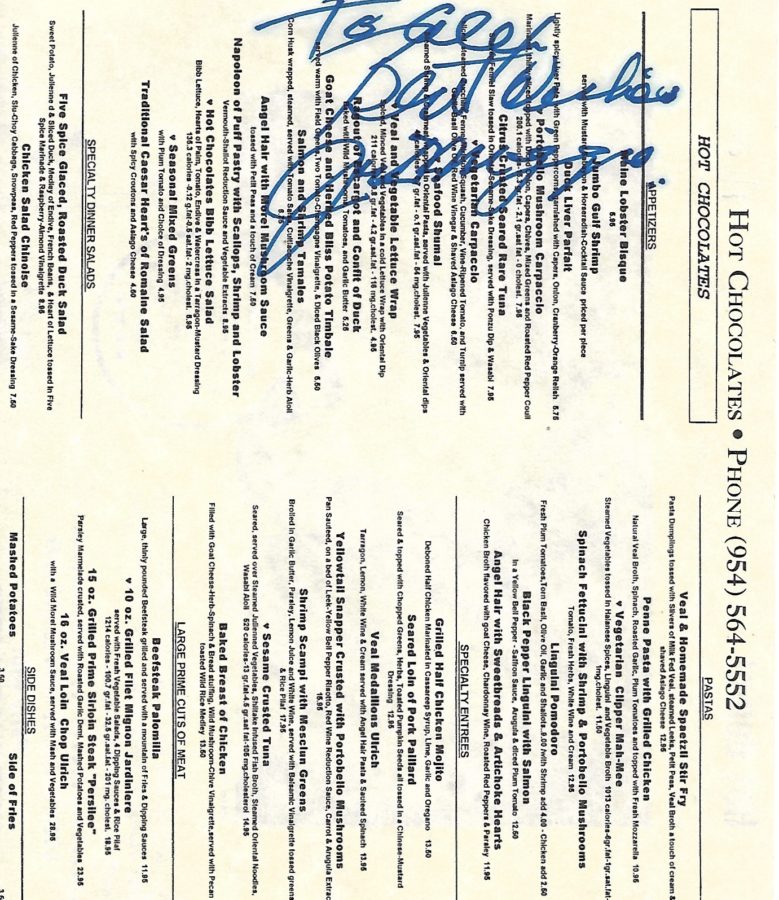 HOT CHOCOLATES • PHONE (954) 564-5552
HOT CHOCOLATES
To
Best Wishes
APPETIZERS
Maine Lobster Bisque
5.95
Jumbo Gulf Shrimp
served with Mustard & Horseradish-Cocktail Sauce priced per piece
Duck Liver Parfait
Lightly spicy Liver Pate with Green Peppercorns, served with Capers, Onion, Cranberry-Orange Relish 5.75
Portobello Mushroom Carpaccio
Capers, Chives, Mixed Greens and Roasted Red Pepper Couli
gr.fat - 2.1 gr.sat.fat - 0 cholest. 7.95
Citrus Crusted Seared Rare Tuna
Fennel Slaw tossed in Sesame-Sake Dressing, served with Ponzu Dip & Wasabi 7.95
Vegetarian Carpaccio
Squash, Cucumber, Vine Ripened Tomato, and Turnip served with
Basil Olive Oil, Red Wine Vinegar & Shaved Asiago Cheese 6.50
Seafood Shumai
in Oriental Pasta, served with Julienne Vegetables & Oriental dips
gr.fat - 0.1 gr.sat.fat - 64 mg.cholest. 7.95
♥ Veal and Vegetable Lettuce Wrap
Minced Veal and Vegetables in a cold Lettuce Wrap with Oriental Dip
211 calories gr.fat - 4.2 gr.sat.fat - 116 mg.cholest. 4.95
Ragout of Escargot and Confit of Duck
Baked with Wild Mushrooms, Tomatoes, and Garlic Butter 5.25
Goat Cheese and Herbed Bliss Potato Timbale
served warm with Field Greens, Two Tomato-Champagne Vinaigrette, & Sliced Black Olives 6.50
Salmon and Shrimp Tamales
Corn Husk wrapped, steamed, served with Tomato Salsa, Cuitlacoche Vinaigrette, Greens & Garlic-Herb Aioli
Angel Hair with Morel Mushroom Sauce
tossed with Petit Peas and a touch of Cream 7.50
Napoleon of Puff Pastry with Scallops, Shrimp and Lobster
Vermouth-Shallot Reduction Sauce and Vegetable Extracts 8.95
♥ Hot Chocolates Bibb Lettuce Salad
Bibb Lettuce, Hearts of Palm, Tomato, Endive & Watercress in a Tarragon-Mustard Dressing
135.3 calories -8.12 g.fat-0.5 sat.fat - 2 mg.cholest 5.95
♥ Seasonal Mixed Greens
with Plum Tomato and Choice of Dressing 4.95
Traditional Caesar Heart's of Romaine Salad
with Spicy Croutons and Asiago Cheese 4.50
SPECIALTY DINNER SALADS
Five Spice Glazed, Roasted Duck Salad
Sweet Potato, Julienne d & Sliced Duck, Medley of Endive, French Beans, & Heart of Lettuce tossed in Five
Spice Marinade & Raspberry-Almond Vinaigrette 8.95
Chicken Salad Chinoise
Julienne of Chicken, Siu-Choy Cabbage, Snowpeas, Red Peppers tossed in a Sesame-Sake Dressing 7.50
PASTAS
Veal & Homemade Spaetzli Stir Fry
Pasta Dumplings tossed with Slivers of Milk Fed Veal, steamed Leeks, Petit Peas, Veal Broth a touch of cream &
shaved Asiago Cheese 12.95
Penne Pasta with Grilled Chicken
Natural Veal Broth, Spinach, Roasted Garlic, Plum Tomatoes and topped with Fresh Mozzarella 10.95
♥ Vegetarian Clipper Mah-Mee
Steamed Vegetables tossed in Balanese Spices, Linguini and Vegetable Broth 1013 calories-6gr.fat-1gr.sat.fat-
1mg.cholest. 11.50
Spinach Fettucini with Shrimp & Portobello Mushrooms
Tomato, Fresh Herbs, White Wine and Cream 12.95
Linguini Pomodoro
Fresh Plum Tomatoes,Torn Basil, Olive Oil, Garlic and Shallots, 9.00 /with Shrimp add 4.00 - Chicken add 2.50
Black Pepper Linguini with Salmon
in a Yellow Bell Pepper - Saffron Sauce, Arugula & diced Plum Tomato 12.50
Angel Hair with Sweetbreads & Artichoke Hearts
Chicken Broth flavored with goat Cheese, Chardonnay Wine, Roasted Red Peppers & Parsley 11.95
SPECIALTY ENTREES
Grilled Half Chicken Mojito
Deboned Half Chicken Marinated in Cassareep Syrup, Lime, Garlic and Oregano 13.50
Seared Loin of Pork Paillard
Seared & topped with Chopped Greens, Herbs, Toasted Pumpkin Seeds all tossed in a Chinese-Mustard
Dressing 12.95
Veal Medallions Ulrich
Tarragon, Lemon, White Wine & Cream served with Angel Hair Pasta & Sauteed Spinach 13.95
Yellowtail Snapper Crusted with Portobello Mushrooms
Pan Sauteed, on a bed of Leek-Yellow Bell Pepper Risotto, Red Wine Reduction Sauce, Carrot & Arugula Extrac
16.95
Shrimp Scampi with Mesclun Greens
Broiled in Garlic Butter, Parsley, Lemon Juice and White Wine, served with Balsamic Vinaigrette tossed greens
& Rice Pilaf 17.95
♥ Sesame Crusted Tuna
Seared, served over Steamed Julienned Vegetables, Shiitake Infused Fish Broth, Steamed Oriental Noodles,
Wasabi Aioli 520 calories-15 gr.fat-4.5 gr.sat.fat-105 mg.cholesterol 14.95
Baked Breast of Chicken
Filled with Goat Cheese-Herb-Spinach & Bread stuffing, Wild Mushroom-Chive Vinaigrette,served with Pecan
toasted Wild Rice Medley 13.50
LARGE PRIME CUTS OF MEAT
Beefsteak Palomilla
Large, thinly pounded Beefsteak grilled and served with a mountain of Fries & Dipping Sauces 11.95
♥ 10 oz. Grilled Filet Mignon Jardiniere
served with Fresh Vegetable Salads, 4 Dipping Sauces & Rice Pilaf
1214 calories - 100.7 gr.fat - 32.5 gr.sat.fat - 201 mg. cholest. 19.95
15 oz. Grilled Prime Sirloin Steak "Persilee"
Parsley Marmelade crusted, served with Roasted Garlic Demi, Mashed Potatoes and Vegetables 23.95
16 oz. Veal Loin Chop Ulrich
with a Wild Morel Mushroom Sauce, served with Mash and Vegetables 28.95
SIDE DISHES
Mashed Potatoes 3.50 Side of Fries 3.5